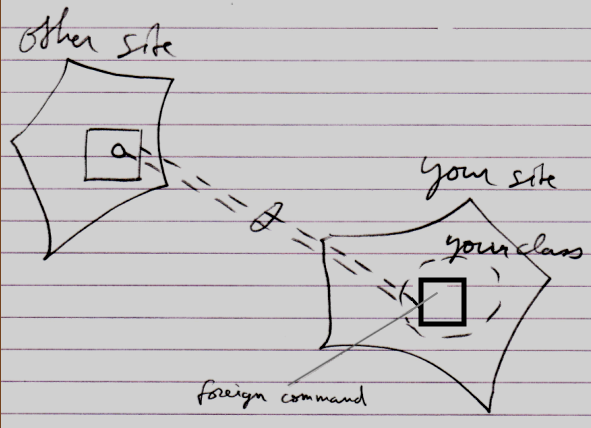 other site
a
your site
your class
foreign command